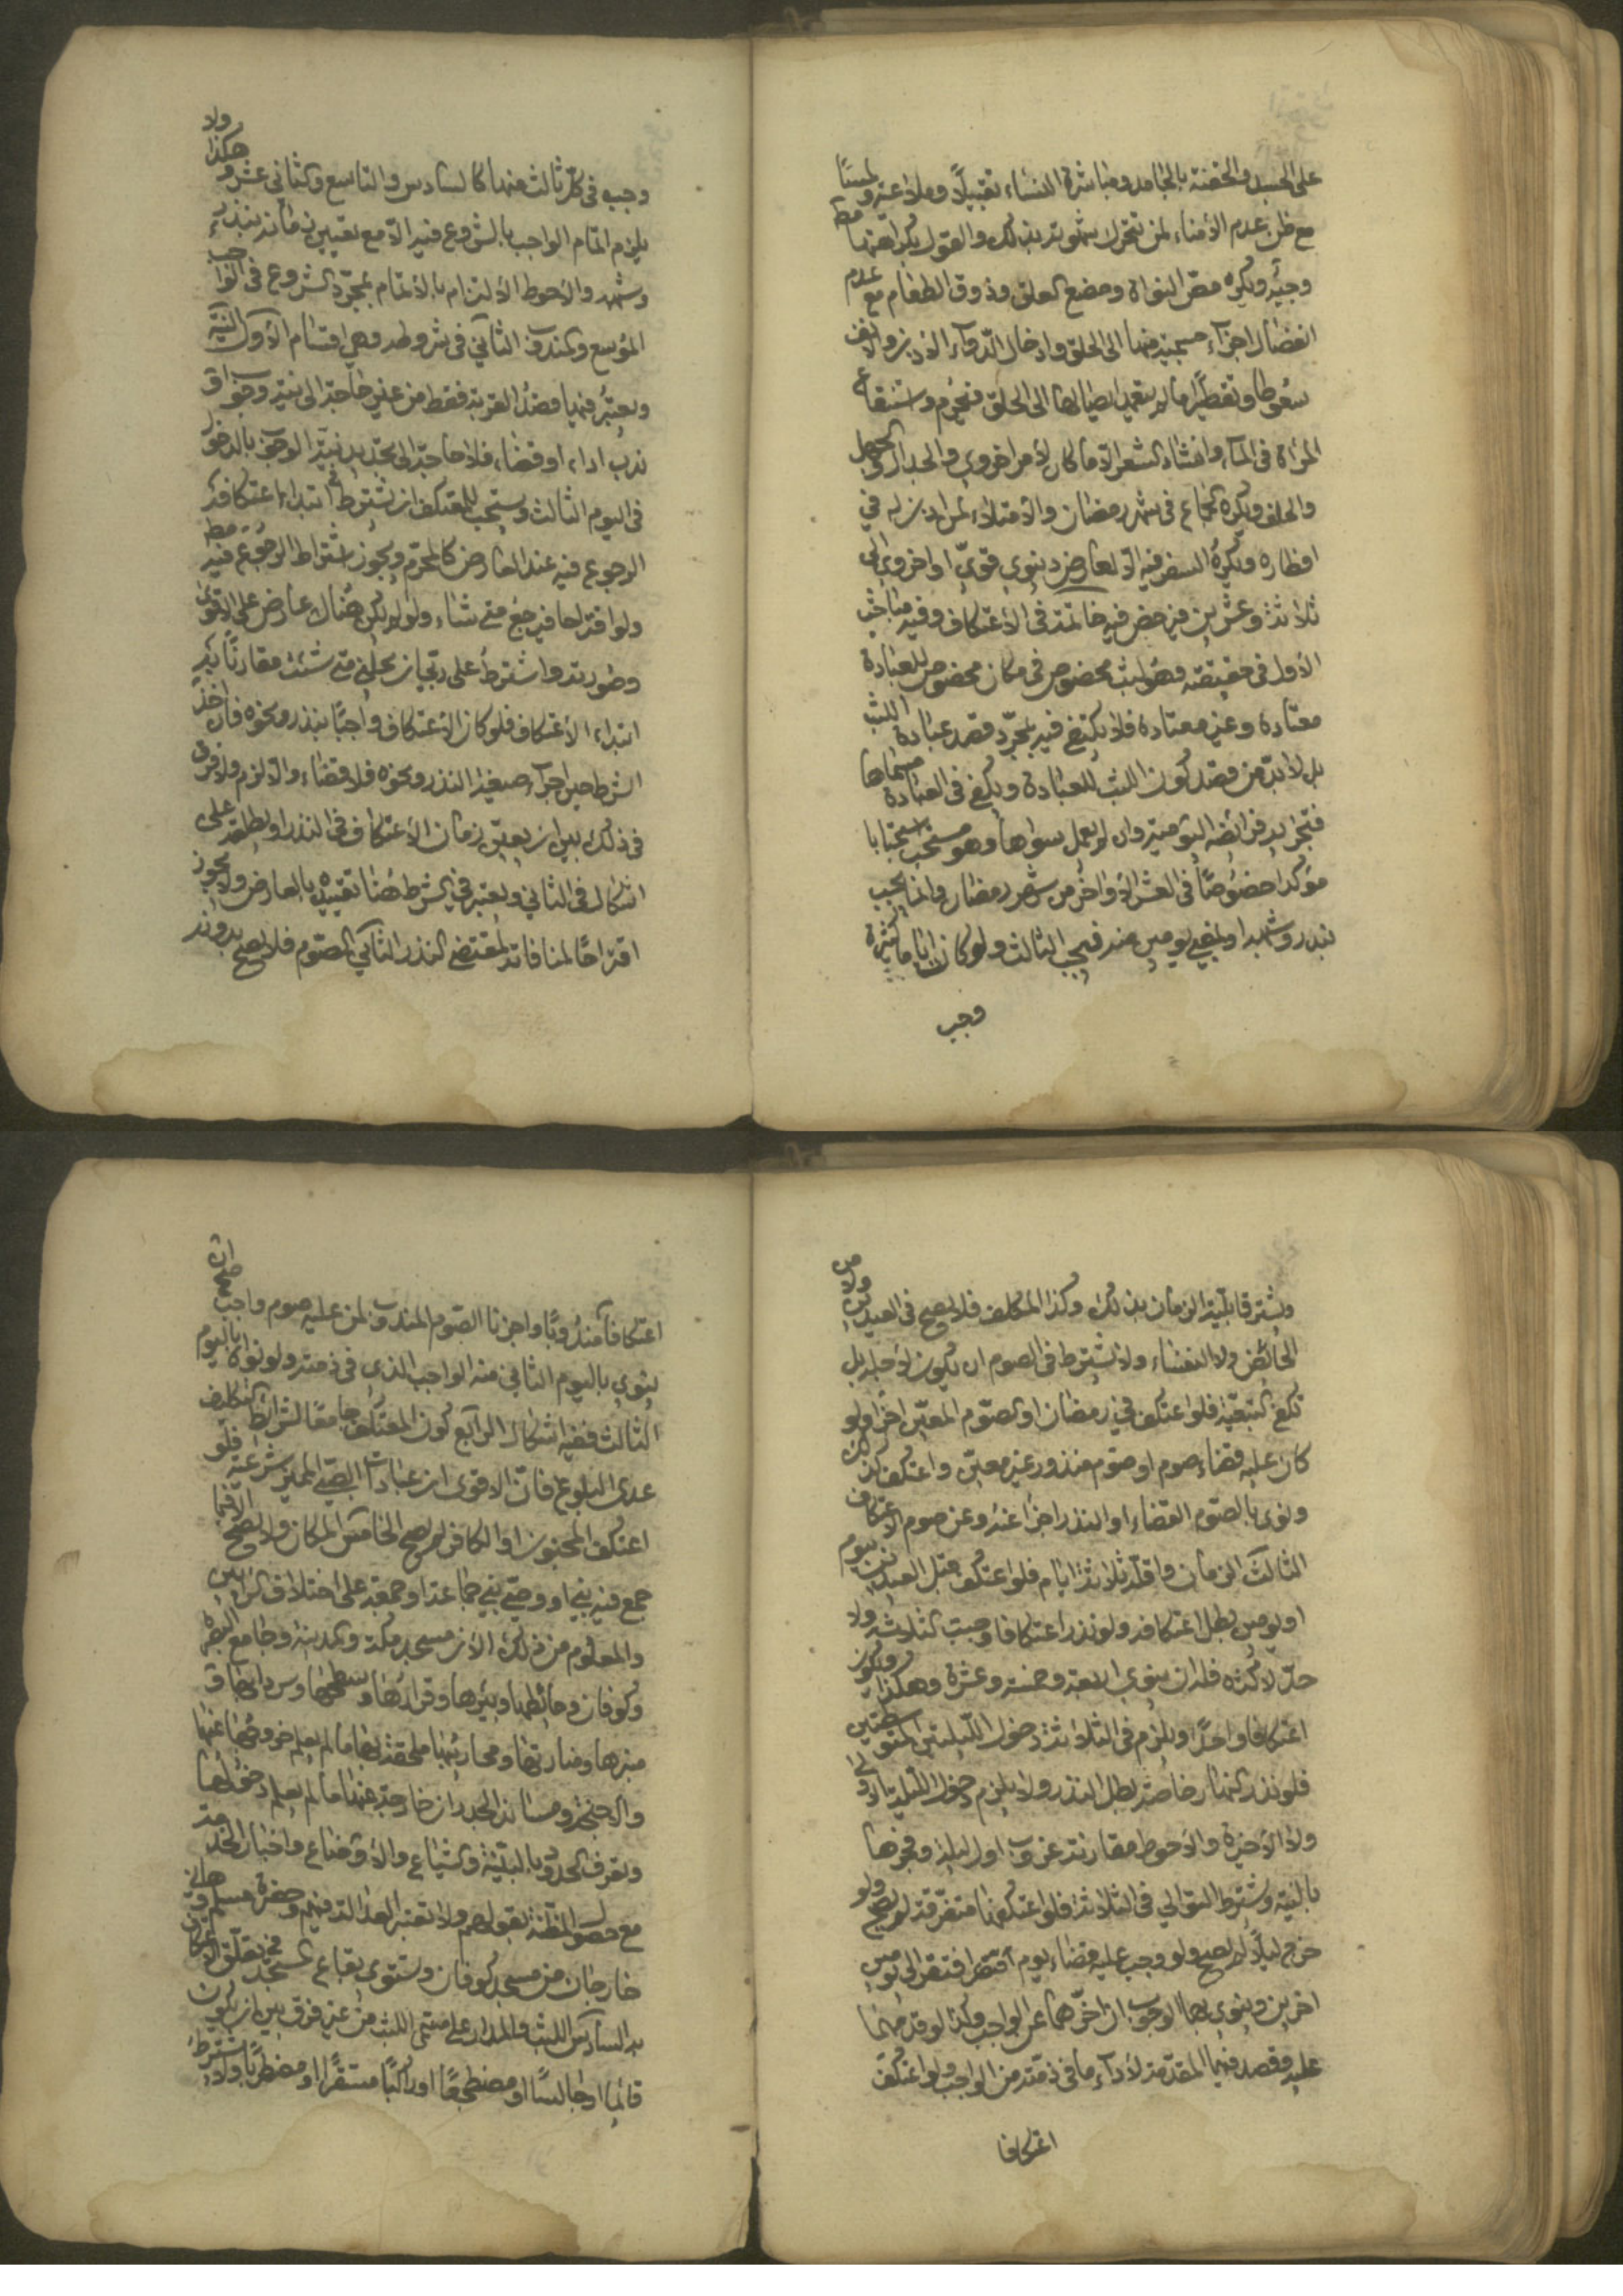 على الجسد والحقنة بالجامد ومباشرة النساء تقبيلًا وملاعبة ولمسًا
مع ظن عدم الأمناء لمن تتحرك شهوته بذلك والقول بكراهتها مط
وجيه ويكره مص النواة ومضغ العلق وذوق الطعام مع عدم
انفصال اجزاء منها الى الحلق وادخال الدواء الاذن والانف
سعوطا وتقطيرا مالم يتعمد ايصالها الى الحلق فيحرم واستنقاع
المراة في الماء وانشاد الشعر الا ما كان لامر اخروي والجدال والجهل
والحلف ويكره الجماع في شهر رمضان والامتلاء لمن اذن له في
افطاره ويكره السفر فيه الا لعارض دنيوي قوي او اخروي الى
ثلاثة وعشرين فيرخص فيه خاتمة في الاعتكاف وفيه مباحث
الاول في حقيقته وهو لبث مخصوص في مكان مخصوص للعبادة
معتادة وغير معتادة فلا يكتفي فيه بمجرد قصد عبادة اللبث
بل لا بد من قصد كون اللبث للعبادة ويكفي في العبادة مسماها
فتجزيه فرائضه اليومية وان لم يعمل سواها وهو مستحب استحبابا
مؤكدا خصوصًا في العشر الاواخر من شهر رمضان وانما يجب
بنذر وشبهه او بمضي يومين منه فيجب الثالث ولو كان اياما كثيرة
وجب
وجب في كل ثالث منها كالسادس والتاسع والثاني عشر وهكذا ولا
يلزم اتمام الواجب بالشروع فيه الا مع تعيين زمانه بنذر
وشبهه والاحوط الالتزام بالاتمام بمجرد الشروع في الواجب
الموسع والمندوب الثاني في شروطه وهي اقسام الاول النية
ويعتبر فيها قصد القربة فقط من غير حاجة الى نية وجوب او
ندب اداء او قضاء فلا حاجة الى تجديد نية الوجوب بالدخول
في اليوم الثالث ويستحب للمعتكف ان يشترط في ابتداء اعتكافه
الرجوع فيه عند العارض كالمحرم ويجوز اشتراط الرجوع فيه مط
ولو اقتراحا فيرجع متى شاء ولو لم يكن هناك عارض على الاقوى
وصورته واشترط على ربي ان يحلني متى شئت مقارنًا به
ابتداء الاعتكاف فلو كان الاعتكاف واجبًا بنذر ونحوه فان اخذ
الشرط حين اجراء صيغة النذر ونحوه فلا قضاء والا لزم ولا فرق
في ذلك بين ان يعين زمان الاعتكاف في النذر او يطلقه على
اشكال في الثاني ويعتبر في الشرط هنا تقييده بالعارض ولا يجوز
اقتراحًا لمنافاته لمقتضى النذر الثاني الصوم فلا يصح بدونه
ويشترط قابلية الزمان بذلك وكذا المكلف فلا يصح في العيدين ولا من
الحائض ولا النفساء ولا يشترط في الصوم ان يكون لاجله بل
تكفي التبعية فلو اعتكف في رمضان او الصوم المعين اجزا ولو
كان عليه قضاء صوم او صوم منذور غير معين واعتكف كذلك
ونوى بالصوم القضاء او النذر اجزا عنه وعن صوم الاعتكاف
الثالث الزمان واقله ثلاثة ايام فلو اعتكف قبل العيدين بيوم
او يومين بطل اعتكافه ولو نذر اعتكافا وجبت الثلاثة ولا
حد لاكثره فله ان ينوي اربعة وخمسة وعشرة وهكذا ويكون
اعتكافا واحدًا ويلزم في الثلاثة دخول الليلتين المتوسطتين
فلو نذر النهار خاصة بطل النذر ولا يلزم دخول الليلة الاولى
ولا الاخيرة والاحوط مقارنته غروب اول ليلة وفجرها
بالنية ويشترط التوالي في الثلاثة فلو اعتكفها متفرقة لم يصح ولو
خرج ليلًا لم يصح ولو وجب عليه قضاء يوم افتقر الى يومين
اخرين وينوي بهما الوجوب ان اخرهما عن الواجب وكذا لو قدمهما
عليه وقصد فيهما المقدمة لاداء ما في ذمته من الواجب ولو اعتكف
اعتكافا
اعتكافًا مندوبًا واجزنا الصوم المندوب لمن عليه صوم واجب صح ان
ينوي باليوم الثاني منه الواجب الذي في ذمته ولو نواه باليوم
الثالث ففيه اشكال الرابع كون المعتكف جامعًا لشرائط التكليف
عدى البلوغ فان الاقوى ان عبادات الصبي المميز شرعية فلو
اعتكف المجنون او الكافر لم يصح الخامس المكان ولا يصح الا فيما
جمع فيه نبي او وصي نبي جماعة او جمعة على اختلاف الرايين
والمعلوم من ذلك الان مسجد مكة والمدينة وجامع البصرة
وكوفان وحائطها وبئرها وقرارها وسطحها وسردابها وق
منبرها ومنارتها ومحاريبها ملحقة بها مالم يعلم خروجها عنها
والاجنحة ومساند الجدران خارجة عنها مالم يعلم دخولها
وتعرف الحدود بالبينة والشياع والاوضاع واخبار الخدمة
مع حصول المظنة بقولهم ولا تعتبر العدالة فيهم وحضرة مسلم وهاني
خارجان من مسجد كوفان وتستوي بقاع المسجد في تعلق الاعتكاف
به السادس اللبث والمدار على مسمى اللبث من غير فرق بين ان يكون
قائما او جالسًا او مضطجعًا او راكبًا مستقرًا او مضطربًا ولا يشترط